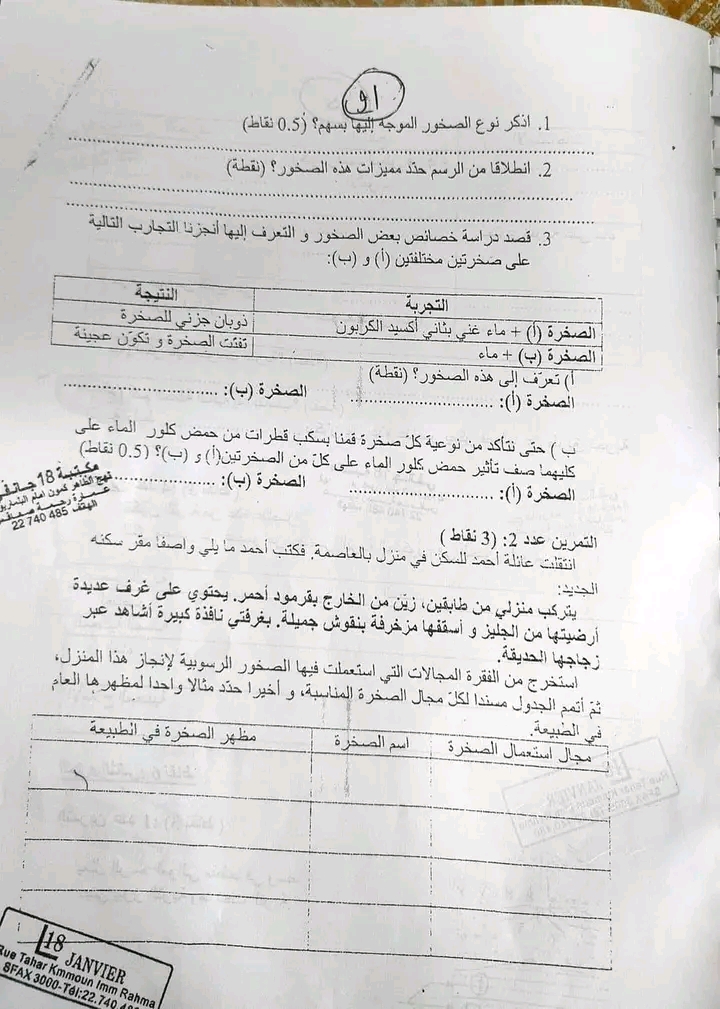 1. اذكر نوع الصخور الموجه إليها بسهم؟ (0.5 نقاط)
2. انطلاقا من الرسم حدّد مميزات هذه الصخور؟ (نقطة)
3. قصد دراسة خصائص بعض الصخور و التعرف إليها أنجزنا التجارب التالية
على صخرتين مختلفتين (أ) و (ب):
التجربة النتيجة
الصخرة (أ) + ماء غني بثاني أكسيد الكربون ذوبان جزئي للصخرة
الصخرة (ب) + ماء تفتّت الصخرة و تكوّن عجينة
أ) تعرّف إلى هذه الصخور؟ (نقطة)
الصخرة (أ): ............................ الصخرة (ب): ............................
ب) حتى نتأكد من نوعية كلّ صخرة قمنا بسكب قطرات من حمض كلور الماء على
كليهما صف تأثير حمض كلور الماء على كلّ من الصخرتين(أ) و (ب)؟ (0.5 نقاط)
الصخرة (أ): ............................ الصخرة (ب): ............................
مكتبة 18 جانفي
الهاتف 22 740 485
التمرين عدد 2: (3 نقاط)
انتقلت عائلة أحمد للسكن في منزل بالعاصمة. فكتب أحمد ما يلي واصفا مقر سكنه
الجديد:
يتركب منزلي من طابقين، زيّن من الخارج بقرمود أحمر. يحتوي على غرف عديدة
أرضيتها من الجليز و أسقفها مزخرفة بنقوش جميلة. بغرفتي نافذة كبيرة أشاهد عبر
زجاجها الحديقة.
استخرج من الفقرة المجالات التي استعملت فيها الصخور الرسوبية لإنجاز هذا المنزل،
ثمّ أتمم الجدول مسندا لكلّ مجال الصخرة المناسبة، و أخيرا حدّد مثالا واحدا لمظهرها العام
في الطبيعة.
مجال استعمال الصخرة اسم الصخرة مظهر الصخرة في الطبيعة
18 JANVIER
Rue Tahar Kmmoun Imm Rahma
SFAX 3000-Tél:22.740